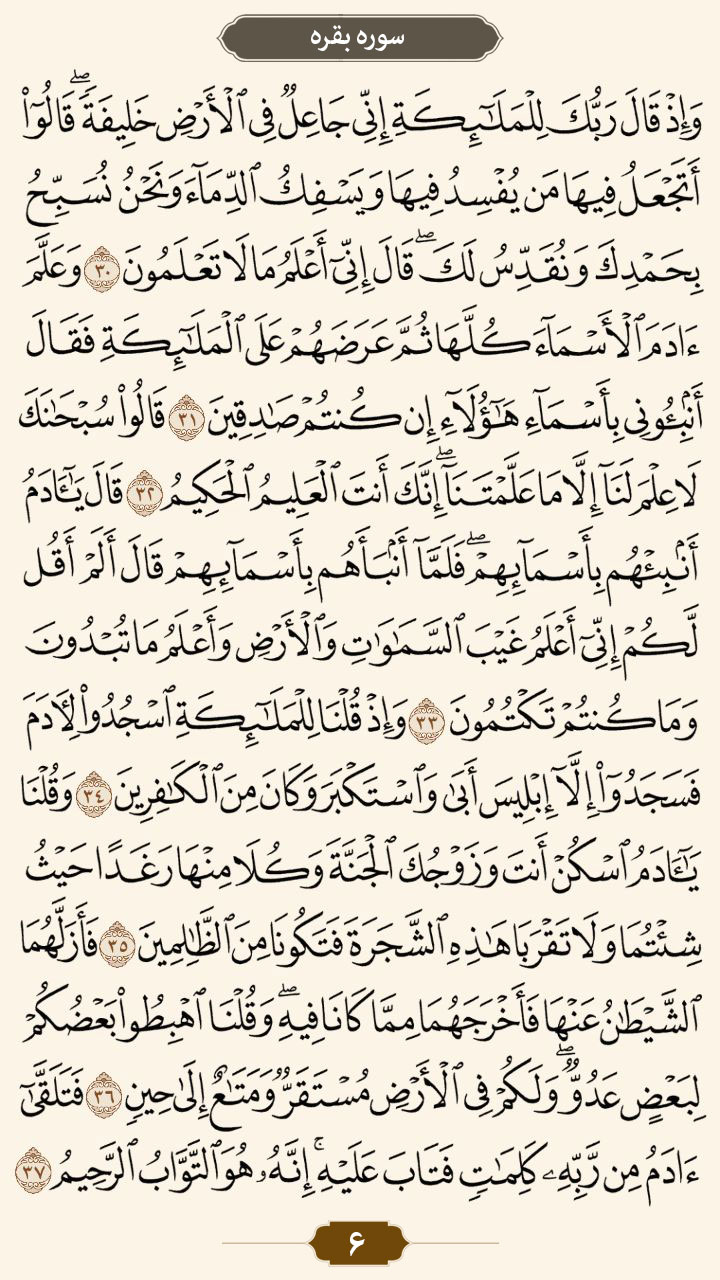 سوره بقره
وَإِذۡ قَالَ رَبُّكَ لِلۡمَلَٰٓئِكَةِ إِنِّي جَاعِلٞ فِي ٱلۡأَرۡضِ خَلِيفَةٗۖ قَالُوٓاْ
أَتَجۡعَلُ فِيهَا مَن يُفۡسِدُ فِيهَا وَيَسۡفِكُ ٱلدِّمَآءَ وَنَحۡنُ نُسَبِّحُ
بِحَمۡدِكَ وَنُقَدِّسُ لَكَۖ قَالَ إِنِّيٓ أَعۡلَمُ مَا لَا تَعۡلَمُونَ ٣٠ وَعَلَّمَ
ءَادَمَ ٱلۡأَسۡمَآءَ كُلَّهَا ثُمَّ عَرَضَهُمۡ عَلَى ٱلۡمَلَٰٓئِكَةِ فَقَالَ
أَنۢبِـُٔونِي بِأَسۡمَآءِ هَٰٓؤُلَآءِ إِن كُنتُمۡ صَٰدِقِينَ ٣١ قَالُواْ سُبۡحَٰنَكَ
لَا عِلۡمَ لَنَآ إِلَّا مَا عَلَّمۡتَنَآۖ إِنَّكَ أَنتَ ٱلۡعَلِيمُ ٱلۡحَكِيمُ ٣٢ قَالَ يَٰٓـَٔادَمُ
أَنۢبِئۡهُم بِأَسۡمَآئِهِمۡۖ فَلَمَّآ أَنۢبَأَهُم بِأَسۡمَآئِهِمۡ قَالَ أَلَمۡ أَقُل
لَّكُمۡ إِنِّيٓ أَعۡلَمُ غَيۡبَ ٱلسَّمَٰوَٰتِ وَٱلۡأَرۡضِ وَأَعۡلَمُ مَا تُبۡدُونَ
وَمَا كُنتُمۡ تَكۡتُمُونَ ٣٣ وَإِذۡ قُلۡنَا لِلۡمَلَٰٓئِكَةِ ٱسۡجُدُواْ لِأٓدَمَ
فَسَجَدُوٓاْ إِلَّآ إِبۡلِيسَ أَبَىٰ وَٱسۡتَكۡبَرَ وَكَانَ مِنَ ٱلۡكَٰفِرِينَ ٣٤ وَقُلۡنَا
يَٰٓـَٔادَمُ ٱسۡكُنۡ أَنتَ وَزَوۡجُكَ ٱلۡجَنَّةَ وَكُلَا مِنۡهَا رَغَدًا حَيۡثُ
شِئۡتُمَا وَلَا تَقۡرَبَا هَٰذِهِ ٱلشَّجَرَةَ فَتَكُونَا مِنَ ٱلظَّٰلِمِينَ ٣٥ فَأَزَلَّهُمَا
ٱلشَّيۡطَٰنُ عَنۡهَا فَأَخۡرَجَهُمَا مِمَّا كَانَا فِيهِۖ وَقُلۡنَا ٱهۡبِطُواْ بَعۡضُكُمۡ
لِبَعۡضٍ عَدُوّٞۖ وَلَكُمۡ فِي ٱلۡأَرۡضِ مُسۡتَقَرّٞ وَمَتَٰعٌ إِلَىٰ حِينٖ ٣٦ فَتَلَقَّىٰٓ
ءَادَمُ مِن رَّبِّهِۦ كَلِمَٰتٖ فَتَابَ عَلَيۡهِۚ إِنَّهُۥ هُوَ ٱلتَّوَّابُ ٱلرَّحِيمُ ٣٧
۶